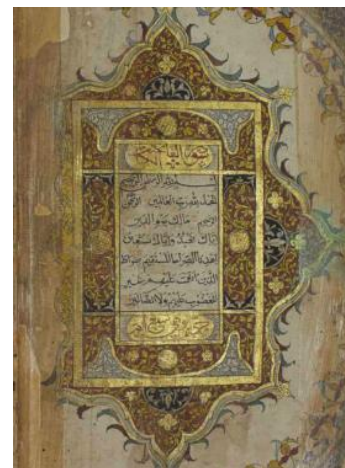 سورة الفاتحة الكتاب
بسم الله الرحمن الرحيم
الحمد لله رب العالمين الرحمن
الرحيم مالك يوم الدين
اياك نعبد واياك نستعين
اهدنا الصراط المستقيم صراط
الذين انعمت عليهم غير
المغضوب عليهم ولا الضالين
وهي سبع